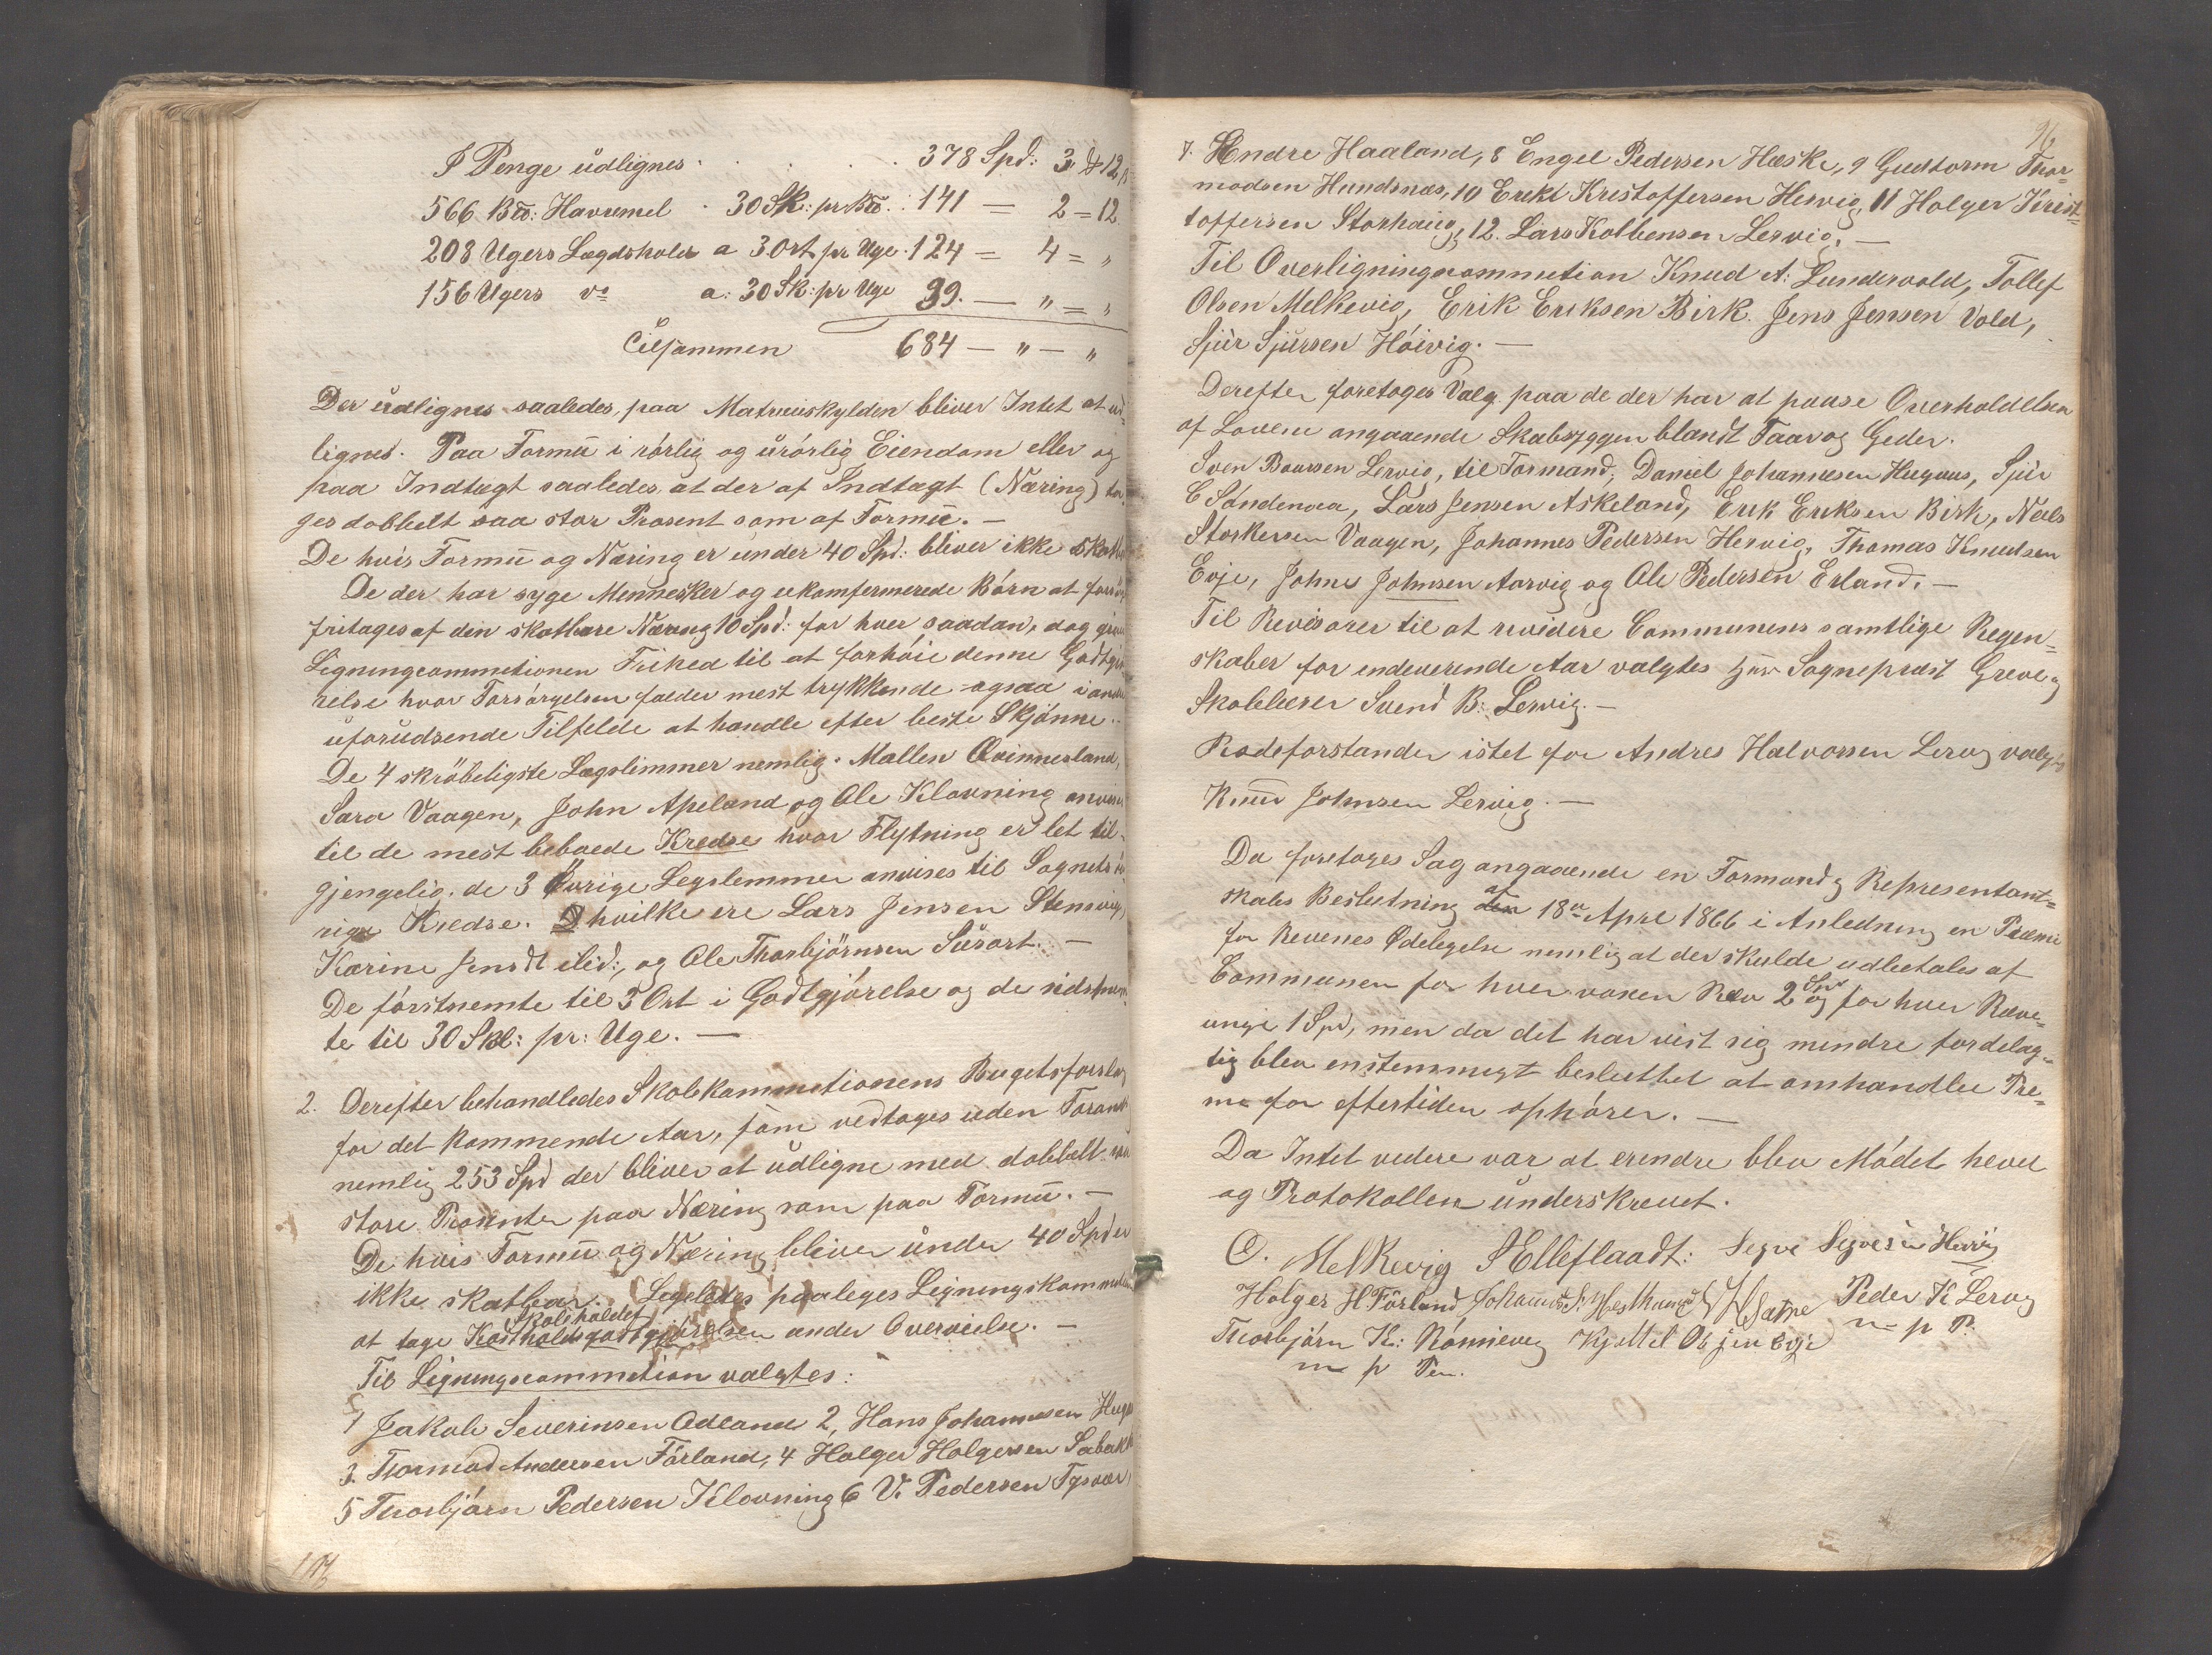 I Penge udlignes . . . . . 378 Spd: 3 # 12
566 Bto: Havremel . 30 Sk: pr Bto. : 141 — 2 = 12
208 Ugers Lægdshold a 3 Ort pr Uge . 124 — 4 = "
156 Ugers do a: 30 Sk: pr Uge 39. — " = "
Tilsammen 684 — " — "
Der udlignes saaledes, paa Matrieuskylden bliver Intet at ud=
lignes. Paa Formu i rørlig og urørlig Eiendom eller og
paa Indtægt saaledes at der af Indtægt (Næring) ta
ges dobbelt saa stor Prosent som af Formu. —
De hvis Formu og Næring er under 40 Spd: bliver ikke skatb
De der har syge Mennesker og ukomfermerede Børn at forsør
fritages af den skatbare Næring 10 Spd: for hver saadan, dog gives
Ligningcommetionen Friked til at forhøie denne Godtgjø
relse hvor Forsørgelsen falder mest trykkende ogsaa i andre
uforudsende Tilfelde at handle efter beste Skjønne. —
De 4 skrøbeligste Lægslimmer nemlig. Mallen Qvinnesland,
Sara Vaagen, John Apeland og Ole Klovning anvises
til de mest beboede Kredse hvor Flytning er let til=
gjengelig. de 3 Øvrige Legslemmer anvises til Sognets ø
vrige Kredse. hvilke ere Lars Jensen Stensvig,
Karine Jensdt ibid:, og Ole Thorbjörnsen Susort. —
De førstnemte til 3 Ort i Godtgjørelse og de sidstnem
te til 30 Skl: pr: Uge. —
2. Derefter behandledes Skolekommetionens Bugetsforslag
for det kommende Aar, som vedtoges uden Forand
nemlig 253 Spd der bliver at udligne med dobbelt saa
store Prosenter paa Næring som paa Formu. —
De hvis Formu og Næring bliver under 40 Spd er
ikke skatbar. Legeledes paaleges Ligningskommetion
Skoleholdet
at tage Kostholdsgodtgjørelsen under Overveielse. —
Til Ligningscommetion valgtes:
1 Jakob Severinsen Odland 2, Hans Johannesen Hugaas
3. Tormod Andersen Førland, 4 Holger Holgersen Sabakk
5 Thorbjørn Pedersen Klovning 6 V. Pedersen Tysvær,
196
96
7. Endre Haaland, 8 Engel Pedersen Hæske, 9 Gudtorm Thor=
modsen Hundsnæs, 10 Erikt Kristoffersen Hervig, 11 Holger Krist=
toffersen Storhaug, 12. Lars Kolbensen Lervig. —
Til Overligningscommetion Knud A: Lundevold, Tollef
Olsen Melkevig, Erik Eriksen Birk. Jens Jensen Vold,
Sjur Sjursen Høivig. —
Derefter foretoges Valg paa de der har at passe Overholdelsen
af Lovene angaaende Skabsygen blandt Faar og Geder.
Sven Baarsen Lervig, til Formand, Daniel Johannesen Hugaas, Sjur
E Søndenaa, Lars Jensen Askeland, Erik Eriksen Birk, Nels
Storkersen Vaagen, Johannes Pedersen Hervig, Thomas Knudsen
Evje, Johnes Johnsen Aarvig og Ole Pedersen Erland. —
Til Revisorer til at revidere Communens samtlige Regen=
skaber for indeverende Aar valgtes Hrr Sogneprest Greve og
Skolelærer Svend B: Lervig. —
Rodeforstander istet for Andres Halvorsen Lervg valgtes
Knud Johnsen Lervig. —
Da foretoges Sag angaaende en Formand & Representant=
skabs Beslutning af 18de Aprl 1866 i Anledning en Premie
for Revenes Ødelegelse nemlig at der skulde udbetales af
Communen for hver voxen Ræv 2 Spd og for hver Ræve=
unge 1 Spd, men da det har vist sig mindre fordelag=
tig blev enstemmigt besluttet at omhandlee Pre=
mie for eftertiden ophører. —
Da Intet videre var at erindre blev Mødet hevet
og Protokollen underskrevet.
O. Melkevig Elleflaadt: Segve Segvesen Hervig
Holger H Førland Johannes S. Hesthamar Peder K Lervg
m p P.
Thorbjørn K: Rønnevig Kjettel Evje
m p Pen.